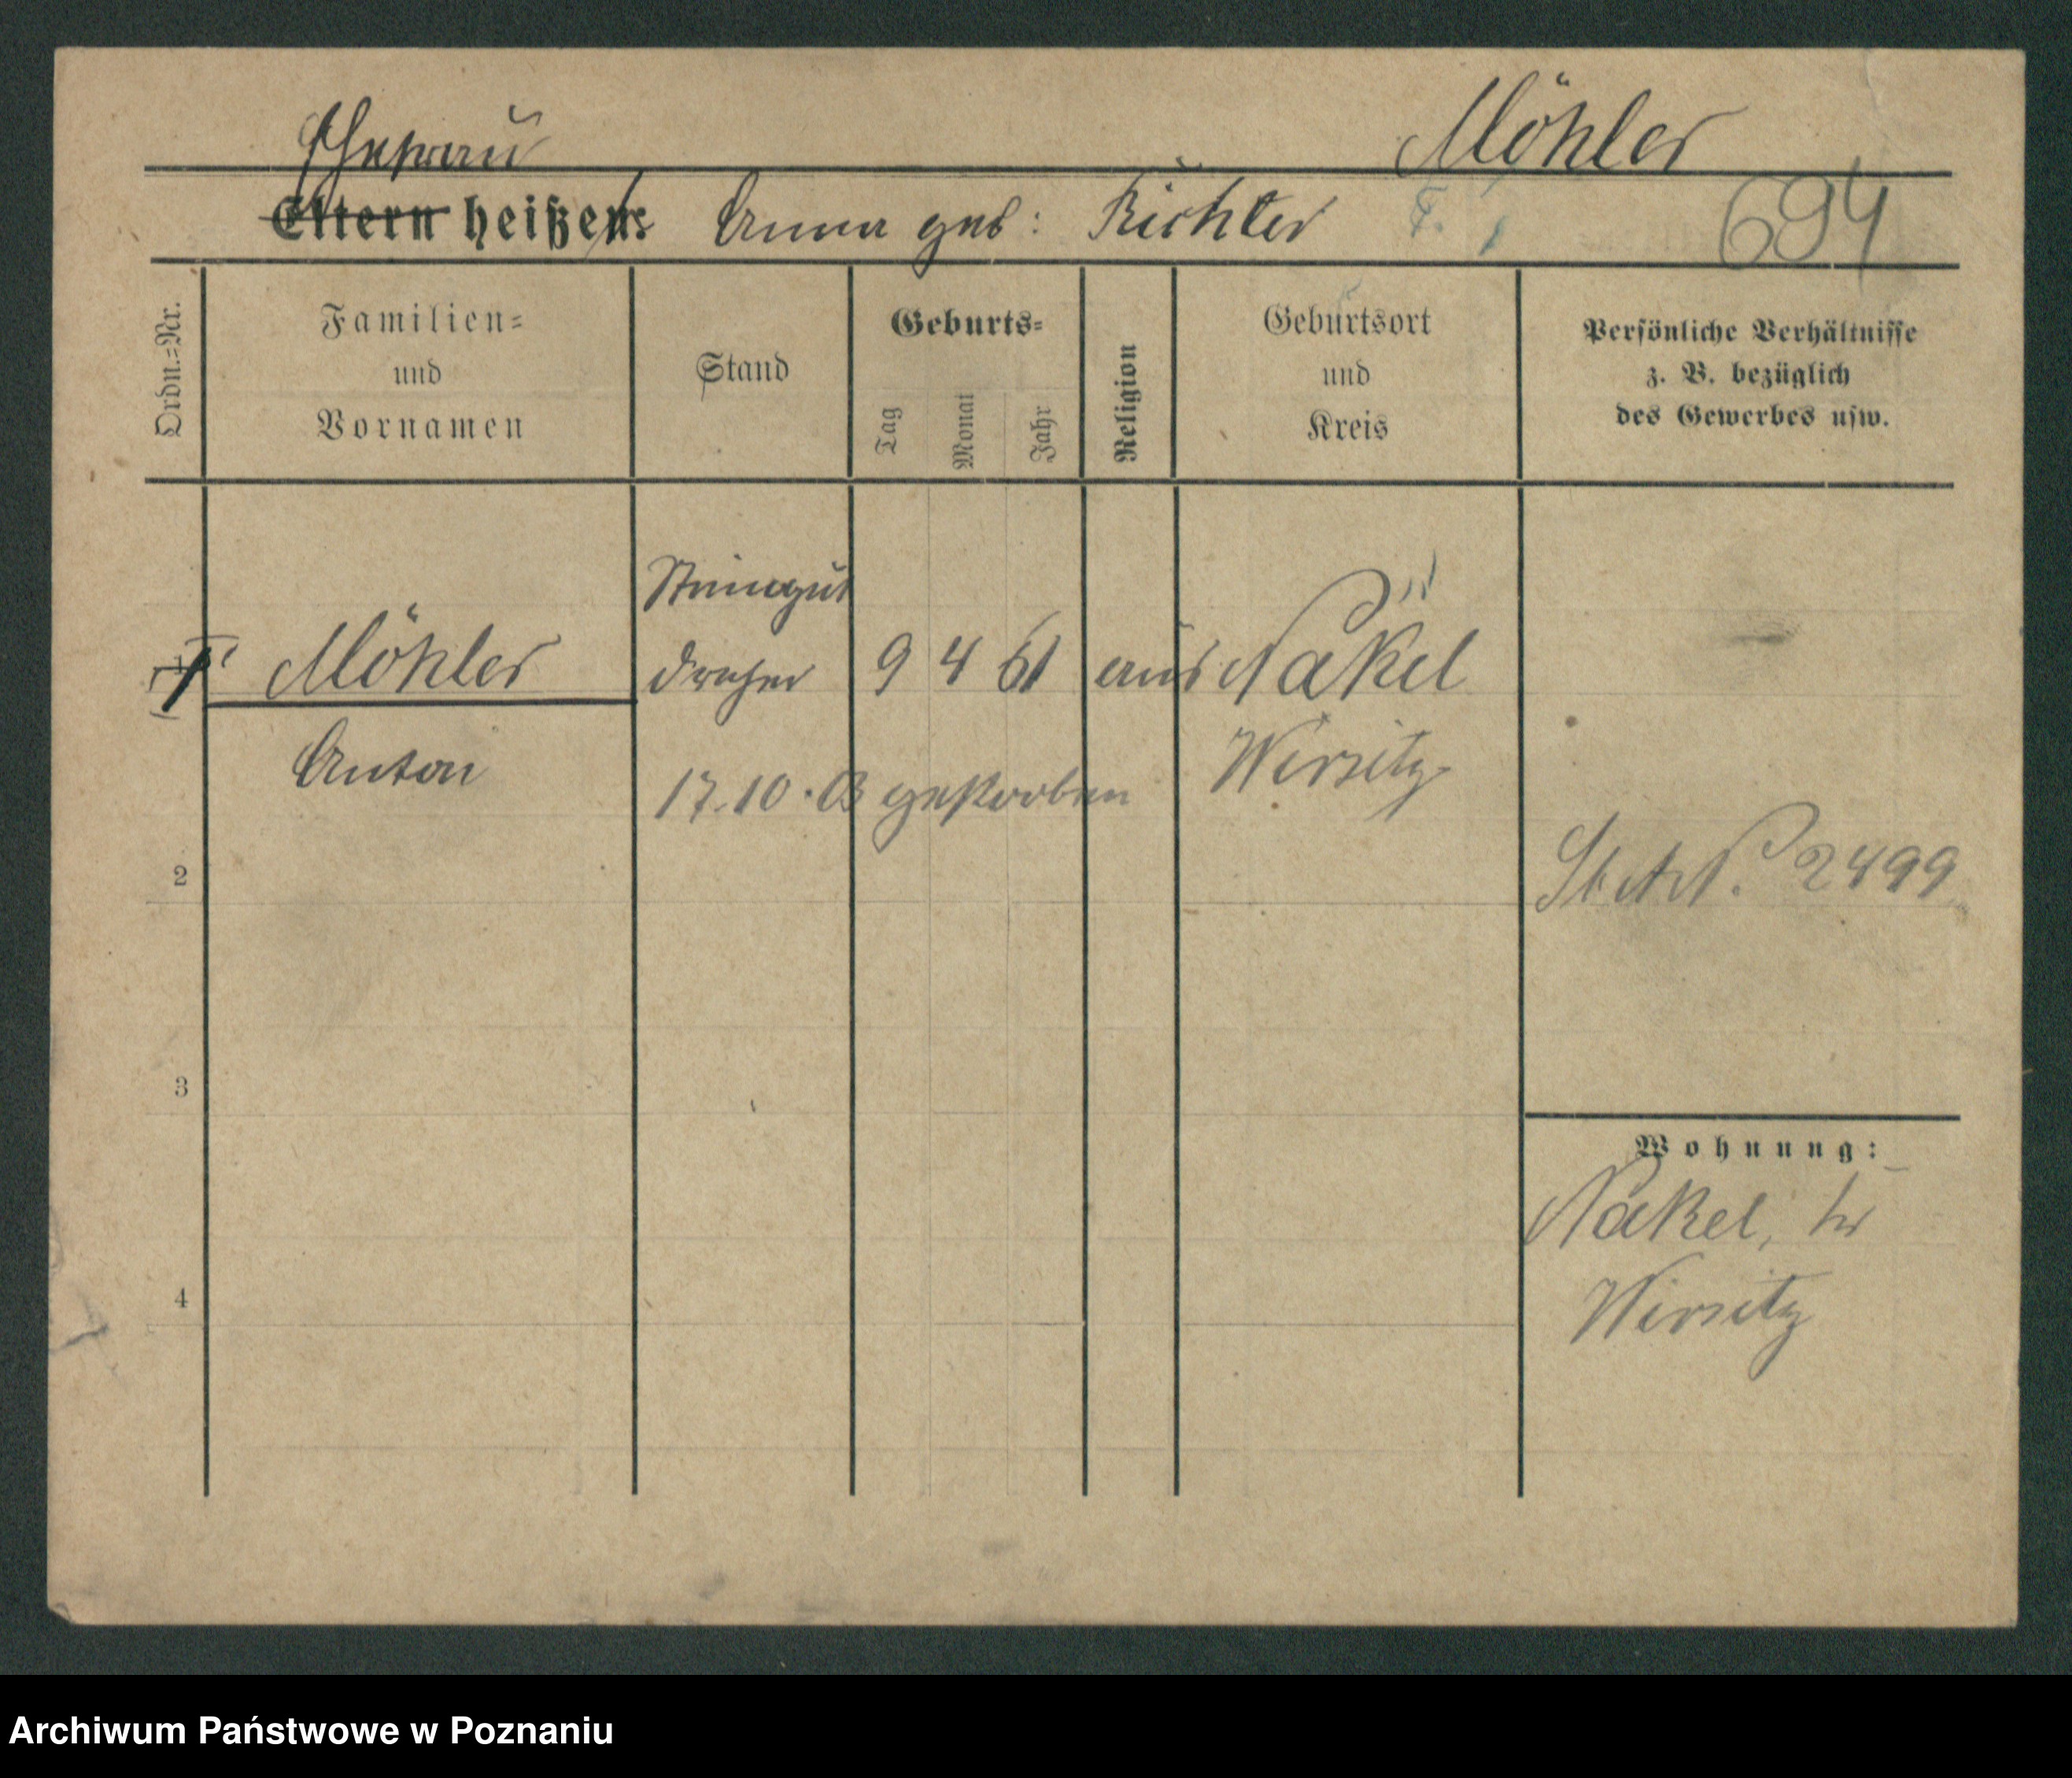 Ehefrau
Möhler
Eltern heißen: Anna geb: Richter F. 694
Ordn.=Nr.
Familien=
und
Vornamen
Stand
Geburts=
Tag
Monat
Jahr
Religion
Geburtsort
und
Kreis
Persönliche Verhältnisse
z. B. bezüglich
des Gewerbes usw.
Steingut
1 Möhler dreher 9 4 61 aus Nakel
Anton Wirsitz
17.10.03 gestorben
2
St. A. N. 2499
3
Wohnung:
Nakel,
4
Wirsitz
Archiwum Państwowe w Poznaniu